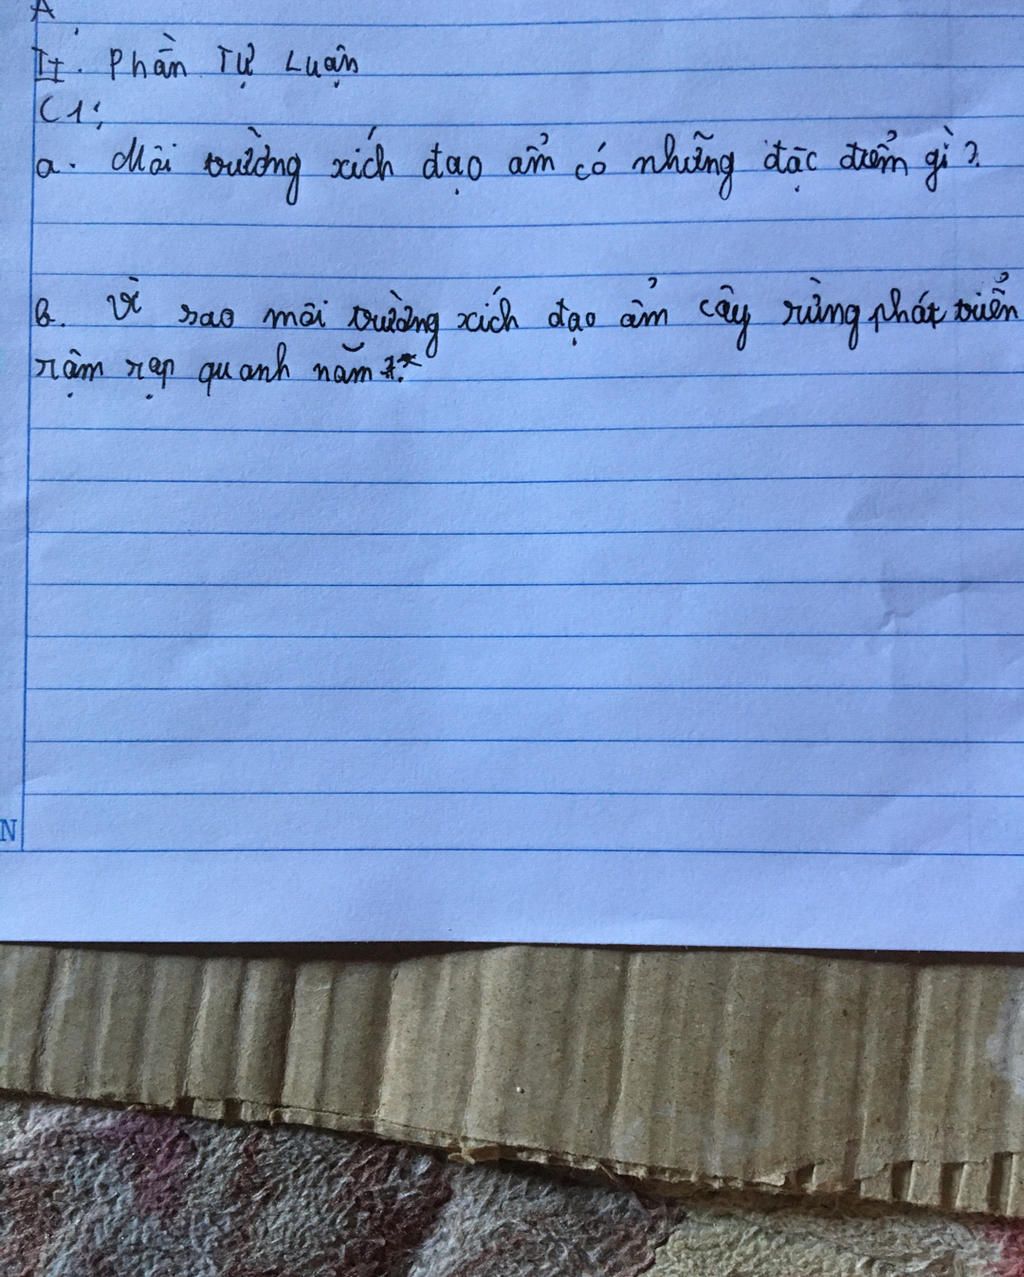 A
II. Phần Tự Luận
C1:
a. Môi trường xích đạo ẩm có những đặc điểm gì?
b. Vì sao môi trường xích đạo ẩm cây rừng phát triển
rậm rạp quanh năm?
N